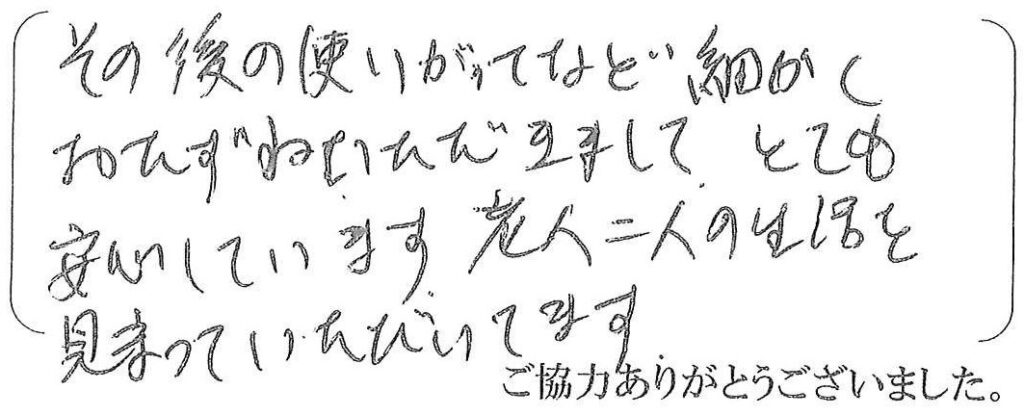 その後の使いがってなど細かく
おたずねいただきまして とても
安心しています 老人二人の生活を
見まっていただいてます
ご協力ありがとうございました。